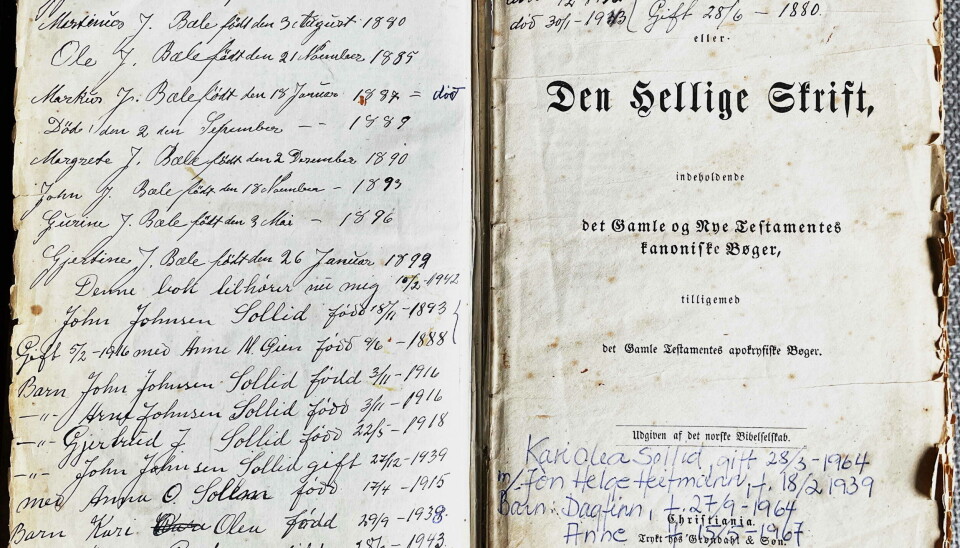 Martinus J. Bæle født den 3 August 1880
Ole J. Bæle født den 21 November 1885
Markus J. Bæle født den 18 Januar 1887 = död
Döde den 2 den September -- 1889
Margrete J. Bæle født den 2 Dezember 1890
John J. Bæle født den 18 November - 1893
Gurine J. Bæle født den 3 Mai - 1896
Gjertine J. Bæle født den 26 Januar 1899
Denne bok tilhører nu meg 10/2-1942
John Johnsen Sollid fødd 18/11-1893
Gift 5/2-1916 med Anne M. Gien fødd 9/6-1888
Barn John Johnsen Sollid fødd 3/11-1916
-"- Arnt Johnsen Sollid fødd 3/11-1916
-"- Gjertrud J. Sollid fødd 22/5-1918
-"- John Johnsen Sollid gift 27/12-1939
med Anna O. fødd 17/4-1915
Barn Kari Olea fødd 29/9-1938
28/6-1943
död 30/1-1943 Gift 28/6-1880.
eller
Den Hellige Skrift,
indeholdende
det Gamle og Nye Testamentes
kanoniske Bøger,
tilligemed
det Gamle Testamentes apokryfiske Bøger.
Udgiven af det norske Bibelselskab.
Kari Olea Sollid, gift 28/3-1964
m/ Jon Helge Heitmann, f. 18/2 1939
Barn: Dagfinn, f. 27/9-1964
Anne -1967
Christiania.
Trykt hos Grøndahl & Søn.